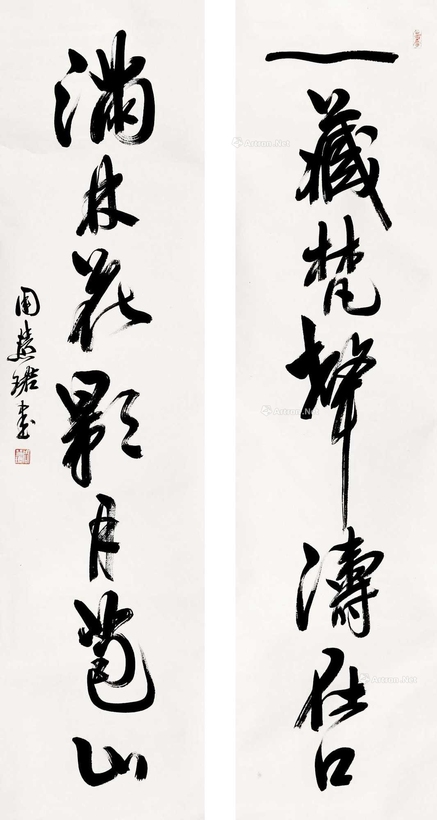 一藏梵聲濤在口
滿林花影月苞山
周慧珺书
Artron.Net
Artron.Net
Artron.Net